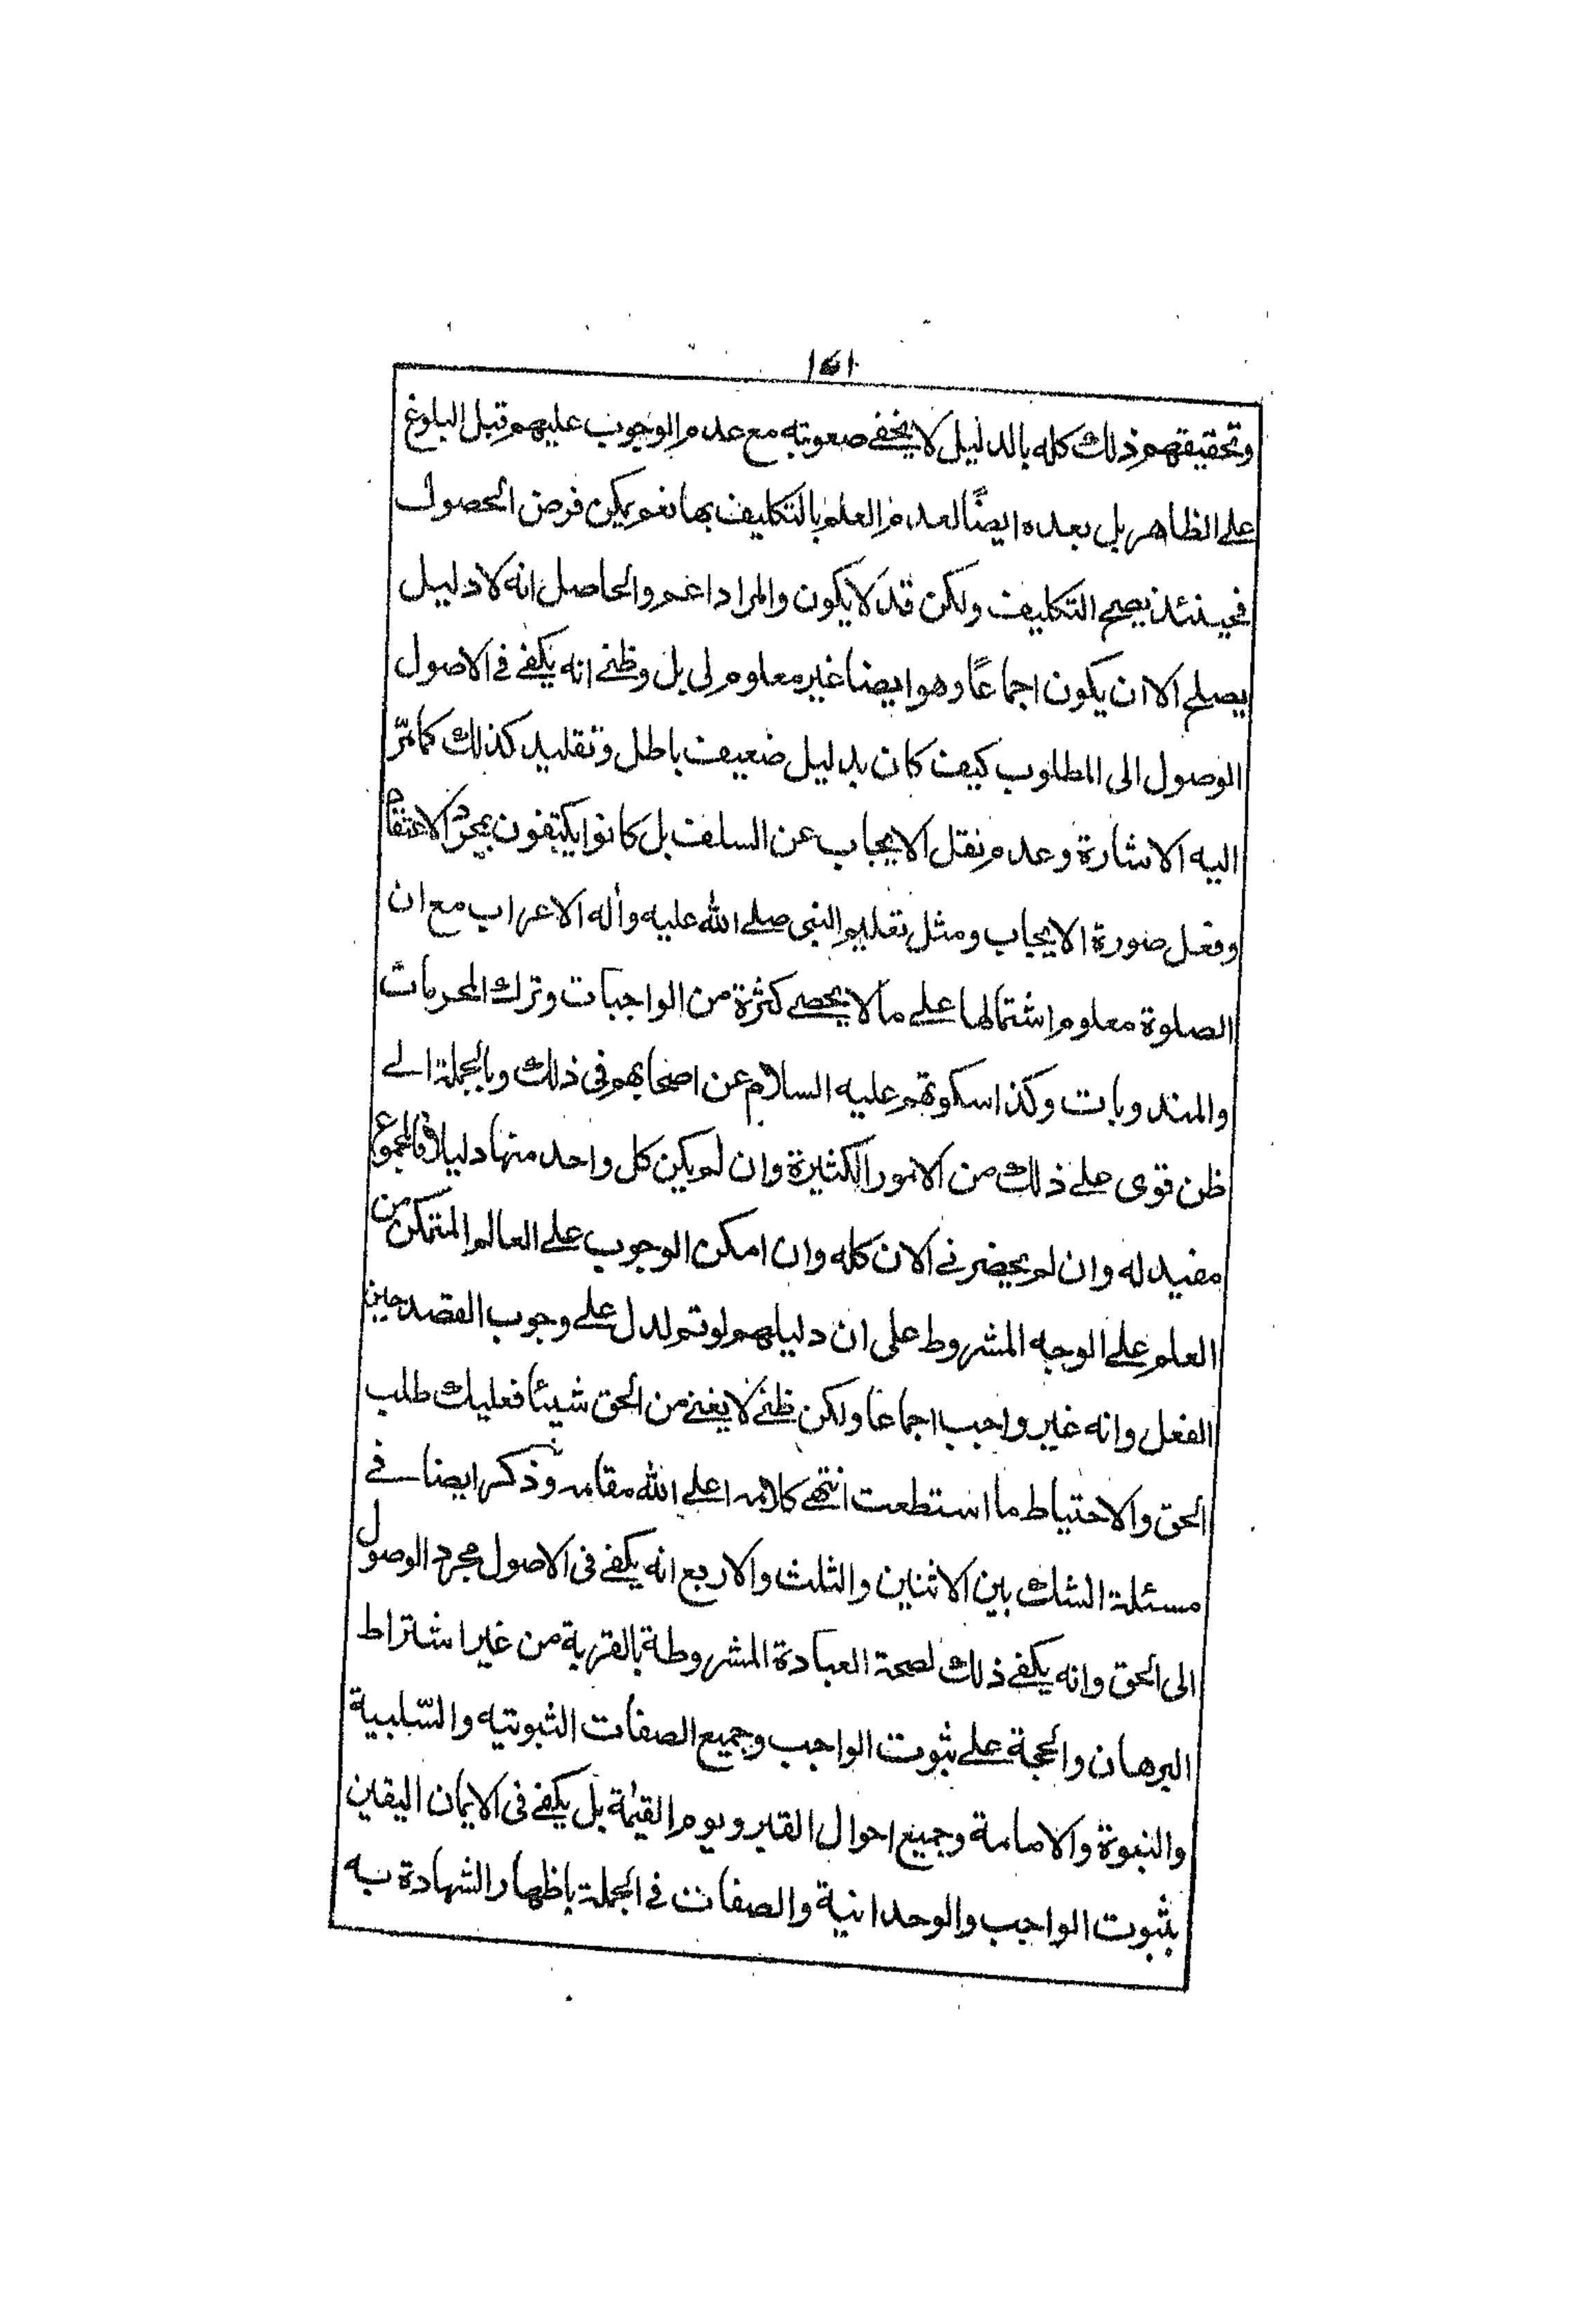 ١٥١
وتحقيقهم ذلك كله بالدليل لا يخفى صعوبته مع عدم الوجوب عليهم قبل البلوغ
على الظاهر بل بعده ايضًا لعدم العلم بالتكليف بها نعم يمكن فرض الحصول
فحينئذ يصح التكليف ولكن قد لا يكون والمراد اعم والحاصل انه لا دليل
يصلح الا ان يكون اجماعًا وهو ايضا غير معلوم لى بل وظنى انه يكفى فى الاصول
الوصول الى المطلوب كيف كان بدليل ضعيف باطل وتقليد كذلك كما مرّ
اليه الاشارة وعدم نقل الايجاب عن السلف بل كانوا يكتفون بمجرد الاعتقاد
وفعل صورة الايجاب ومثل تعليم النبى صلى الله عليه وأله الاعراب مع ان
الصلوة معلوم اشتمالها على ما لا يحصى كثرة من الواجبات وترك المحرمات
والمندوبات وكذا سكوتهم عليه السلام عن اصحابهم فى ذلك وبالجملة الى
ظن قوى على ذلك من الامور الكثيرة وان لم يكن كل واحد منها دليلا فالمجموع
مفيد له وان لم يحضر نى الان كله وان امكن الوجوب على العالم المتمكن من
العلم على الوجه المشروط على ان دليلهم لو تم لدل على وجوب القصد حين
الفعل وانه غير واجب اجماعا ولكن ظنى لا يغنى من الحق شيئا فعليك طلب
الحق والاحتياط ما استطعت انتهى كلامه اعلى الله مقامه وذكر ايضا فى
مسئلة الشك بين الاثنين والثلث والاربع انه يكفى فى الاصول مجرد الوصول
الى الحق وانه يكفى ذلك لصحة العبادة المشروطة بالقربة من غير اشتراط
البرهان والحجة على ثبوت الواجب وجميع الصفات الثبوتيه والسّلبية
والنبوة والامامة وجميع احوال القبر ويوم القيمة بل يكفى فى الايمان اليقين
بثبوت الواجب والوحدانية والصفات فى الجملة باظهار الشهادة به